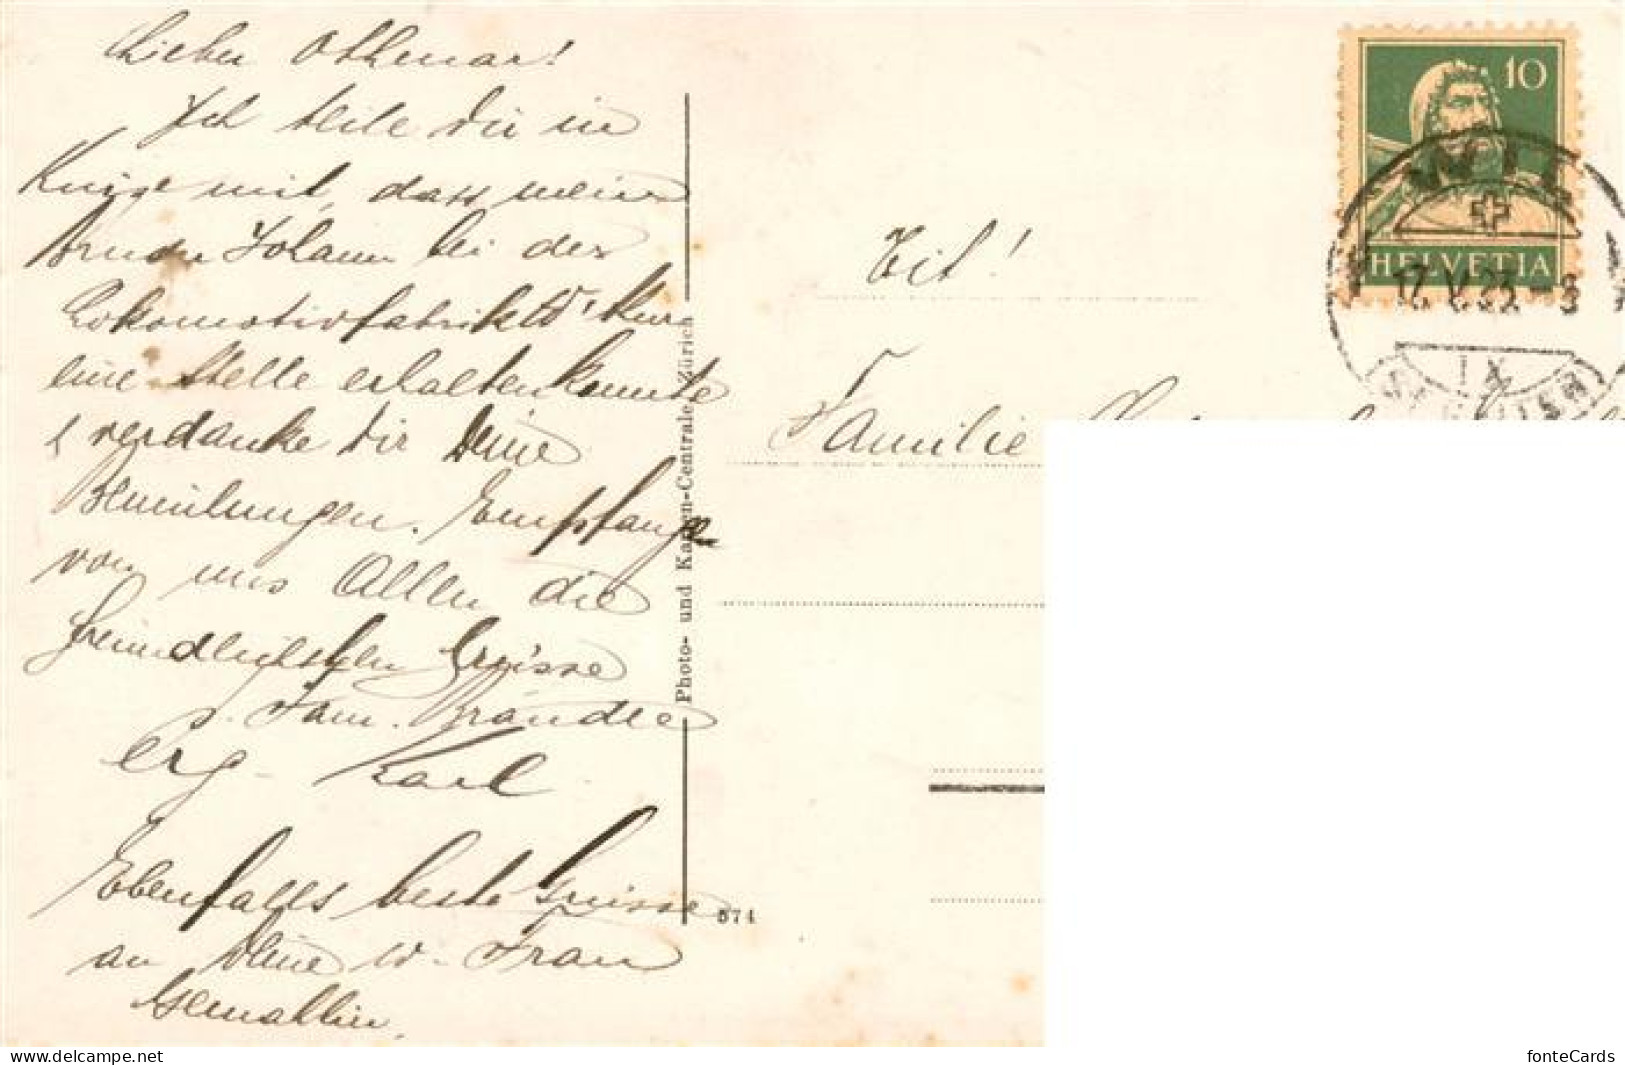 Lieber Othmar!
Ich teile Dir in
Kürze mit, dass mein
Bruder Johann bei der
Lokomotivfabrik W'thur
eine Stelle erhalten konnte
& verdanke Dir Deine
Bemühungen. Empfange
von uns Allen die
freundlichsten Grüsse
v. Fam. Brändle
erg. Karl
Ebenfalls beste Grüsse
an Deine w. Frau
Gemahlin.
Photo- und Karten-Centrale Zürich
571
Tit!
Familie
10
HELVETIA
17. V. 8
IX
fonteCards
www.delcampe.net